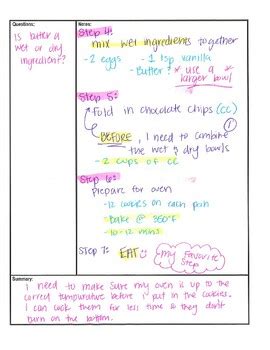 Questions:
Is butter a
wet or dry
ingredient?
Notes:
Step 4:
mix wet ingredients together
-2 eggs - 1 tsp vanilla
-Butter? * use a
larger bowl *
Step 5:
Fold in chocolate chips (CC)
1
BEFORE, I need to combine
the wet & dry bowls
- 2 cups of CC
Step 6:
Prepare for oven
-12 cookies on each pan
-Bake @ 350°F
-10-12 mins
Step 7: EAT
my Favorite
Step
Summary:
I need to make sure my oven is up to the
correct temperature before I put in the cookies.
I can cook them for less time so they don't
burn on the bottom.